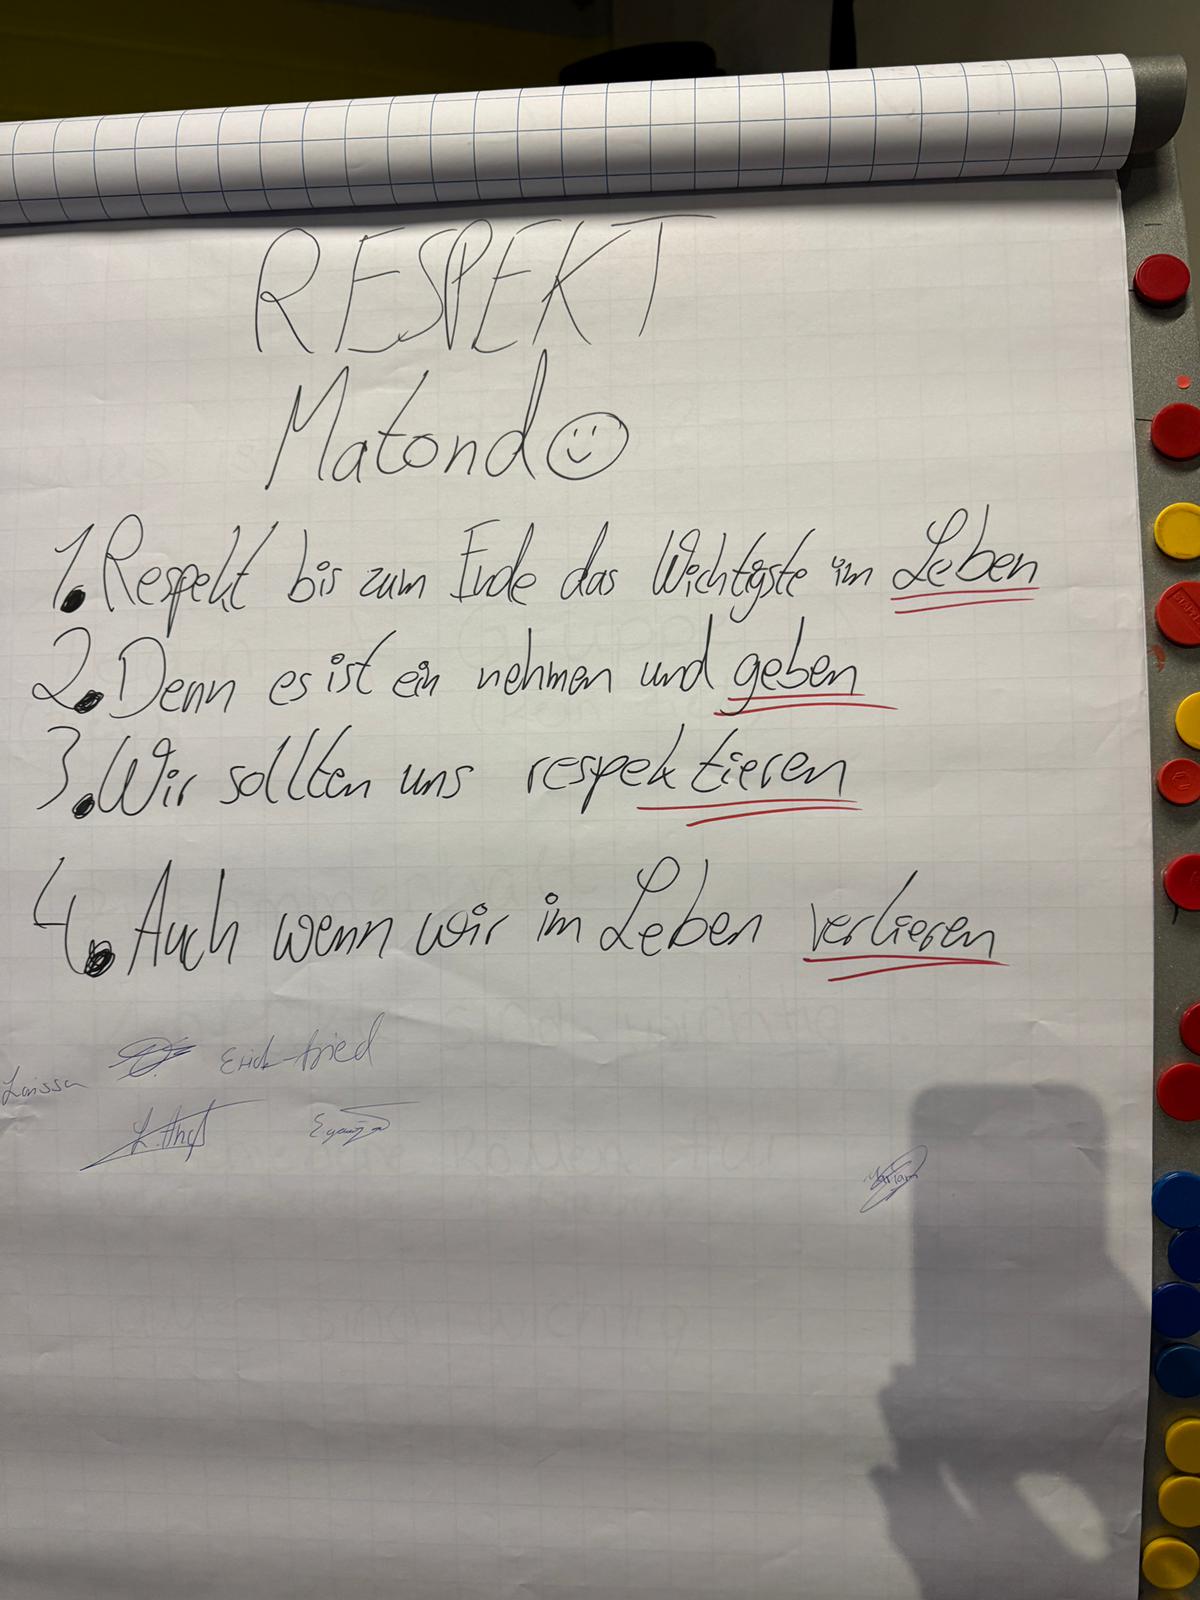 RESPEKT
Matondo
1. Respekt bis zum Ende das Wichtigste im Leben
2. Denn es ist ein nehmen und geben
3. Wir sollten uns respektieren
4. Auch wenn wir im Leben verlieren
Erich-fried
Larissa